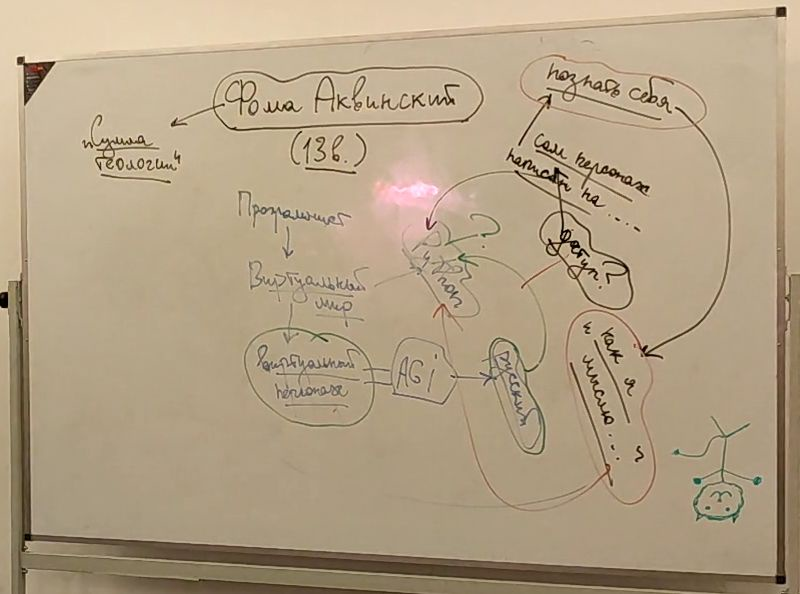 Фома Аквинский
(13в.)
„Сумма
теологии“
познать себя
Сам персонаж
написан на ....
Доступ?
Программист
Виртуальный
мир
Виртуальный
персонаж
AGi
русский
?
"Как я
мыслю...."